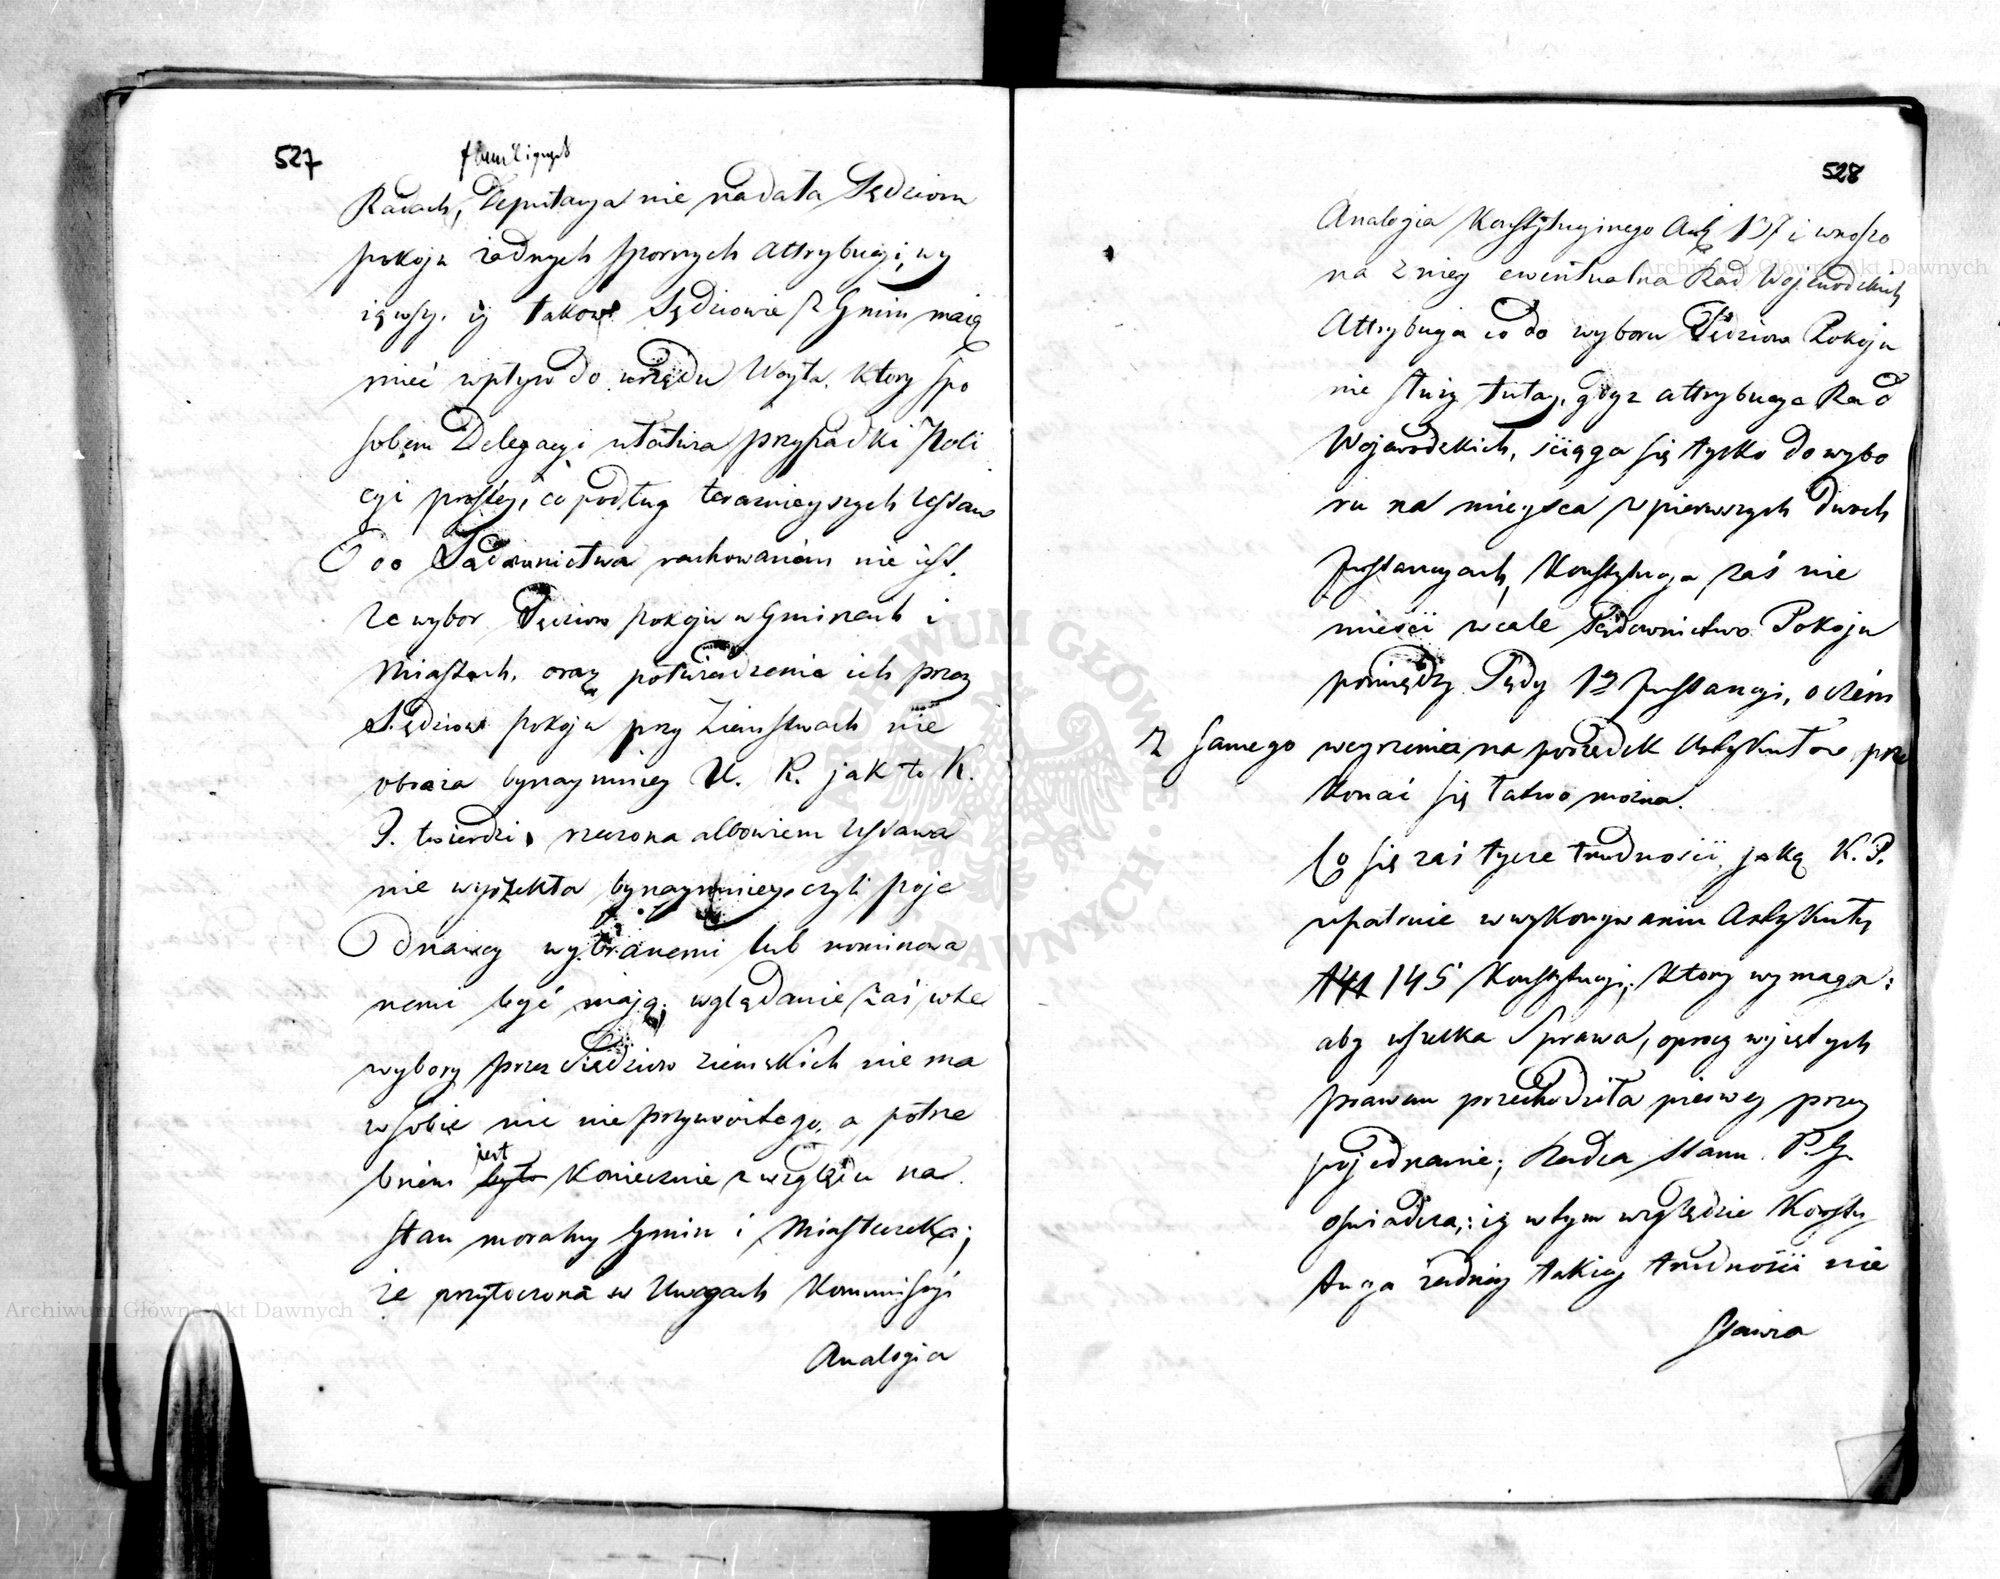 527
familijnych
Radach, Deputacya nie nadała Sędziom
pokoju żadnych spornych attrybucyi, wy
iąwszy, iż takowi Sędziowie z Gmin maią
mieć wpływ do urzędu Woyta, ktory spo
sobem Delegacyi ułatwia przypadki Poli
cyi prostey, co podług teraznieyszych Ustaw
do Sądownictwa rachowaniem nie iest,
że wybor Sędziow pokoju w Gminach i
Miastach, oraz potwierdzenie ich przez
Sędziow pokoju przy Ziemstwach nie
obraża bynaymniey U. K. jak to K.
P. twierdzi, rzeczona albowiem Ustawa
nie wyrzekła bynaymniey, czyli poje
dnawcy wybranemi lub nominowa
nemi być mają; wglądanie zaś w te
wybory przez Sędziow ziemskich nie ma
w sobie nic nieprzyzwoitego, a potrze
bnem jest było koniecznie z względu na
stan moralny Gmin i Miasteczek;
że przytoczona w Uwagach Kommissyi
Analogia
528
Analogia Konstytucyinego Art 137 i wnoszo
na z niey ewentualna Rad Wojewodzkich
Attrybucya co do wyboru Sędziow Pokoju
nie służy tutay, gdyż attrybucya Rad
Wojewodzkich, ściąga się tylko do wybo
ru na mieysca w pierwszych dwoch
Instancyach, Konstytucya zaś nie
mieści wcale Sądownictwo Pokoju
pomiędzy Sądy 1ey Instancyi, o czém
z samego weyrzenia na porządek Artykułow prze
konać się łatwo można.
Co się zaś tycze trudności, jaką K. P.
upatruie w wykonywaniu Artykułu
144 145 Konstytucyi, ktory wymaga:
aby wszelka Sprawa, oprocz wyiętych
prawem przechodziła pierwey przez
pojednanie; Radca Stanu P. G.
oświadcza,: iż w tym względzie Konsty
tucya żadney takiey trudności nie
stawia
Archiwum Główne Akt Dawnych
Archiwum Główne Akt Dawnych
ARCHIWUM GŁÓWNE AKT DAWNYCH